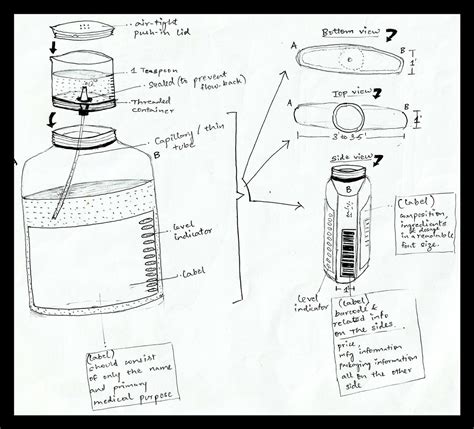 air-tight
push-in lid
1 Teaspoon
Sealed (to prevent
flow-back)
Threaded
container
Capillary / thin
tube
A
B
level
indicator
Label
(label)
should consist
of only the name
and primary
medical purpose
Bottom view
A
B
1'
Top view
A
B
1'
3' to 3.5'
side view
B
1'
level
indicator
(label)
composition,
ingredients
& dosage
in a readable
font size.
(label)
barcode &
related info
on the sides.
price,
mfg information
packaging information
all on the other
side